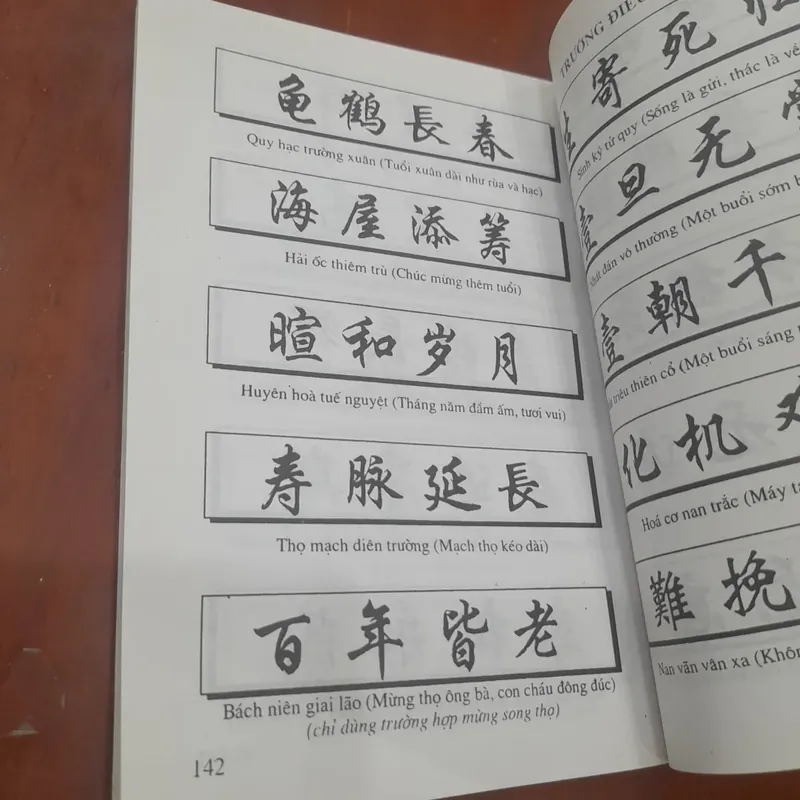 龟鹤長春
Quy hạc trường xuân (Tuổi xuân dài như rùa và hạc)
海屋添筹
Hải ốc thiêm trù (Chúc mừng thêm tuổi)
暄和岁月
Huyên hoà tuế nguyệt (Tháng năm đầm ấm, tươi vui)
寿脉延長
Thọ mạch diên trường (Mạch thọ kéo dài)
百年皆老
Bách niên giai lão (Mừng thọ ông bà, con cháu đông đúc)
(chỉ dùng trường hợp mừng song thọ)
142
TRƯỜNG
寄死
Sinh ký tử quy (Sống là gửi, thác là về
壹旦无
Nhất đán vô thường (Một buổi sớm
壹朝千
triêu thiên cổ (Một buổi sáng
化机
Hoá cơ nan trắc (Máy
難挽
Nan vãn vân xa (Khôn